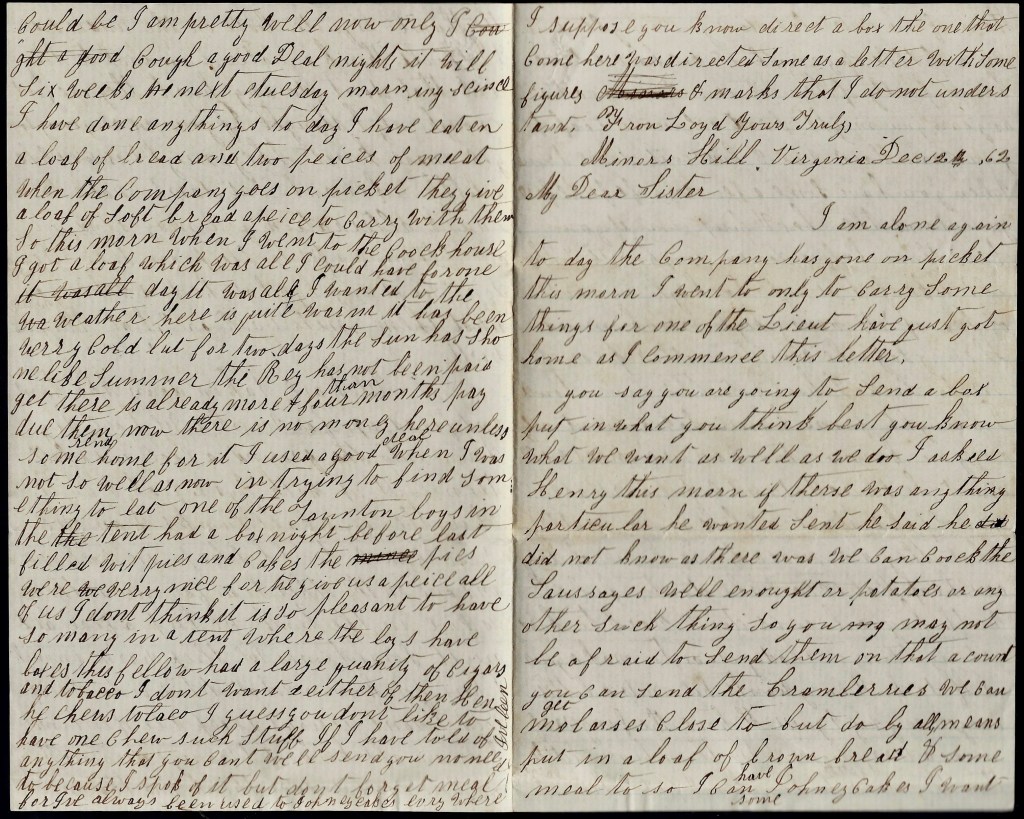 could be I am pretty well now only I cou
ght a good cough a good Deal nights it will
six weeks next tuesday morning seince
I have done anythings to day I have eaten
a loaf of bread and two peices of meeat
when the Company goes on picket they give
a loaf of soft bread apeice to carry with them
So this morn when I went to the Coock house
I got a loaf which was all I could have for one
it was all day It was all I wanted to the
wa weather here is quite warm it has been
verry cold but for two days the sun has sho
ne like Summer the Reg has not been paid
get there is already more than four months pay
due them now there is no money here unless
some send home for it I used a good deal when I was
not so well as now in trying to find som
ething to eat one of the Taunton boys in
the the tent had a box night before last
filled wit pies and cakes the pies
were we verry nice for he give us a peice all
of us I dont think it is so pleasant to have
so many in a tent where the boys have
boxes this fellow had a large quanity of cigars
and tobacco I dont want either of then Hen
he chews tobaco I guess you dont like to
have one chew such stuff If I have told of
anything that you cant well send you no need
to because I spok of it but dont forget meal
for Ive always been used to Johneycakes evry where
I suppose you know direct a box the one that
come here was directed same as a letter with some
figures & marks that I do not unders
tand. From Loyd Yours Truly
Miners Hill Virginia Dec 12th, 62
My Dear Sister
I am alone again
to day the Company has gone on picket
this morn I went to only to carry some
things for one of the Lieut have just got
home as I commence this letter.
you say you are going to send a box
put in what you think best you know
what we want as well as we doo I asked
Henry this morn if therse was anything
particular he wanted sent he said he did
did not know as there was we can coock the
Saussages well enought or potatoes or any
other suck thing so you mg may not
be afraid to send them on that acount
you can send the Cramberries we can
get molasses close to but do by all means
put in a loaf of brown bread & some
meal to so I can have some Johneycakes I want